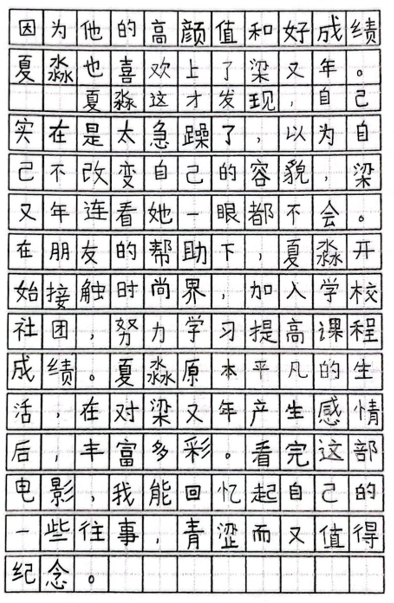 因为他的高颜值和好成绩
夏淼也喜欢上了梁又年。
夏淼这才发现，自己
实在是太急躁了，以为自
己不改变自己的容貌，梁
又年连看她一眼都不会。
在朋友的帮助下，夏淼开
始接触时尚界，加入学校
社团，努力学习提高课程
成绩。夏淼原本平凡的生
活，在对梁又年产生感情
后，丰富多彩。看完这部
电影，我能回忆起自己的
一些往事，青涩而又值得
纪念。